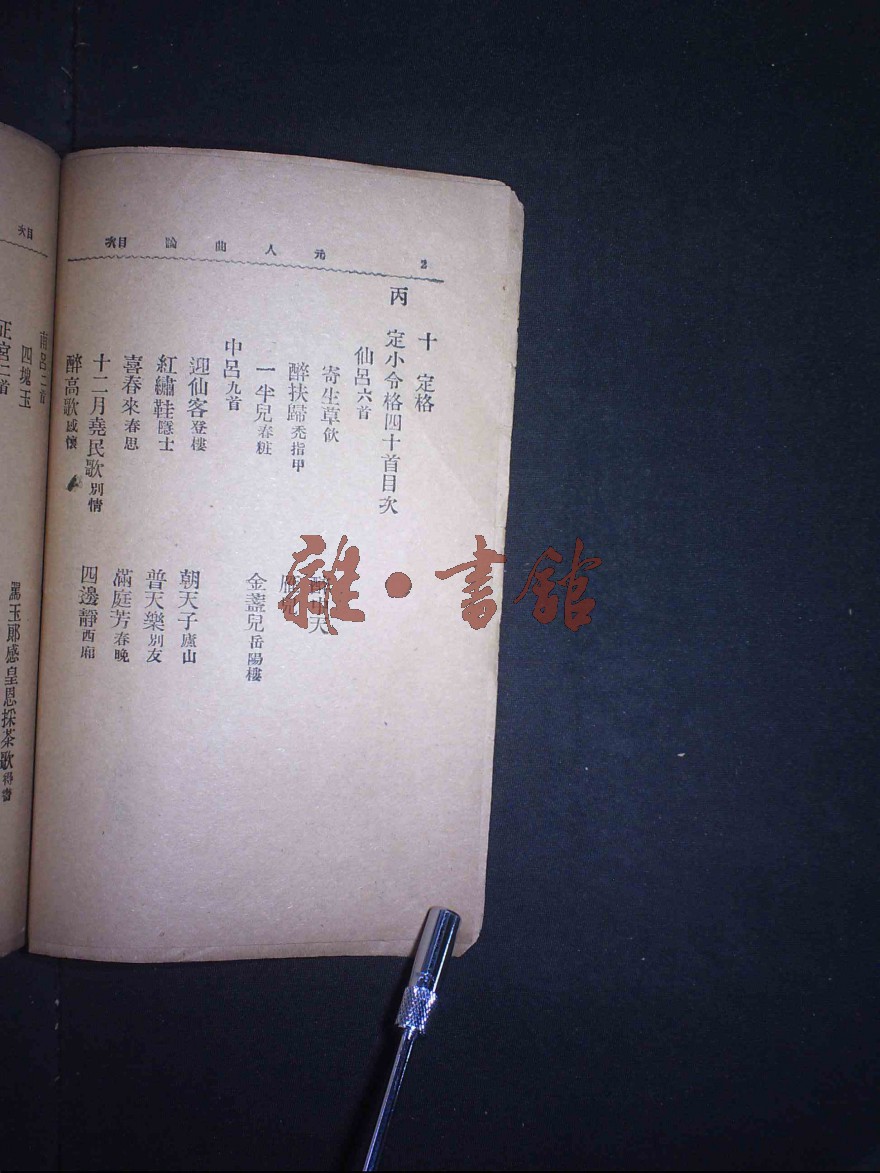 2 元人曲論 目次
十 定格
丙 定小令格四十首目次
仙呂六首
寄生草飲 醉中天
醉扶歸禿指甲 雁兒
一半兒春粧 金盞兒岳陽樓
中呂九首
迎仙客登樓 朝天子廬山
紅繡鞋隱士 普天樂別友
喜春來春思 滿庭芳春晚
十二月堯民歌別情 四邊靜西廂
醉高歌感懷
目次
南呂二首
四塊玉 罵玉郎感皇恩採茶歌得書
正宮二首
雜·書館